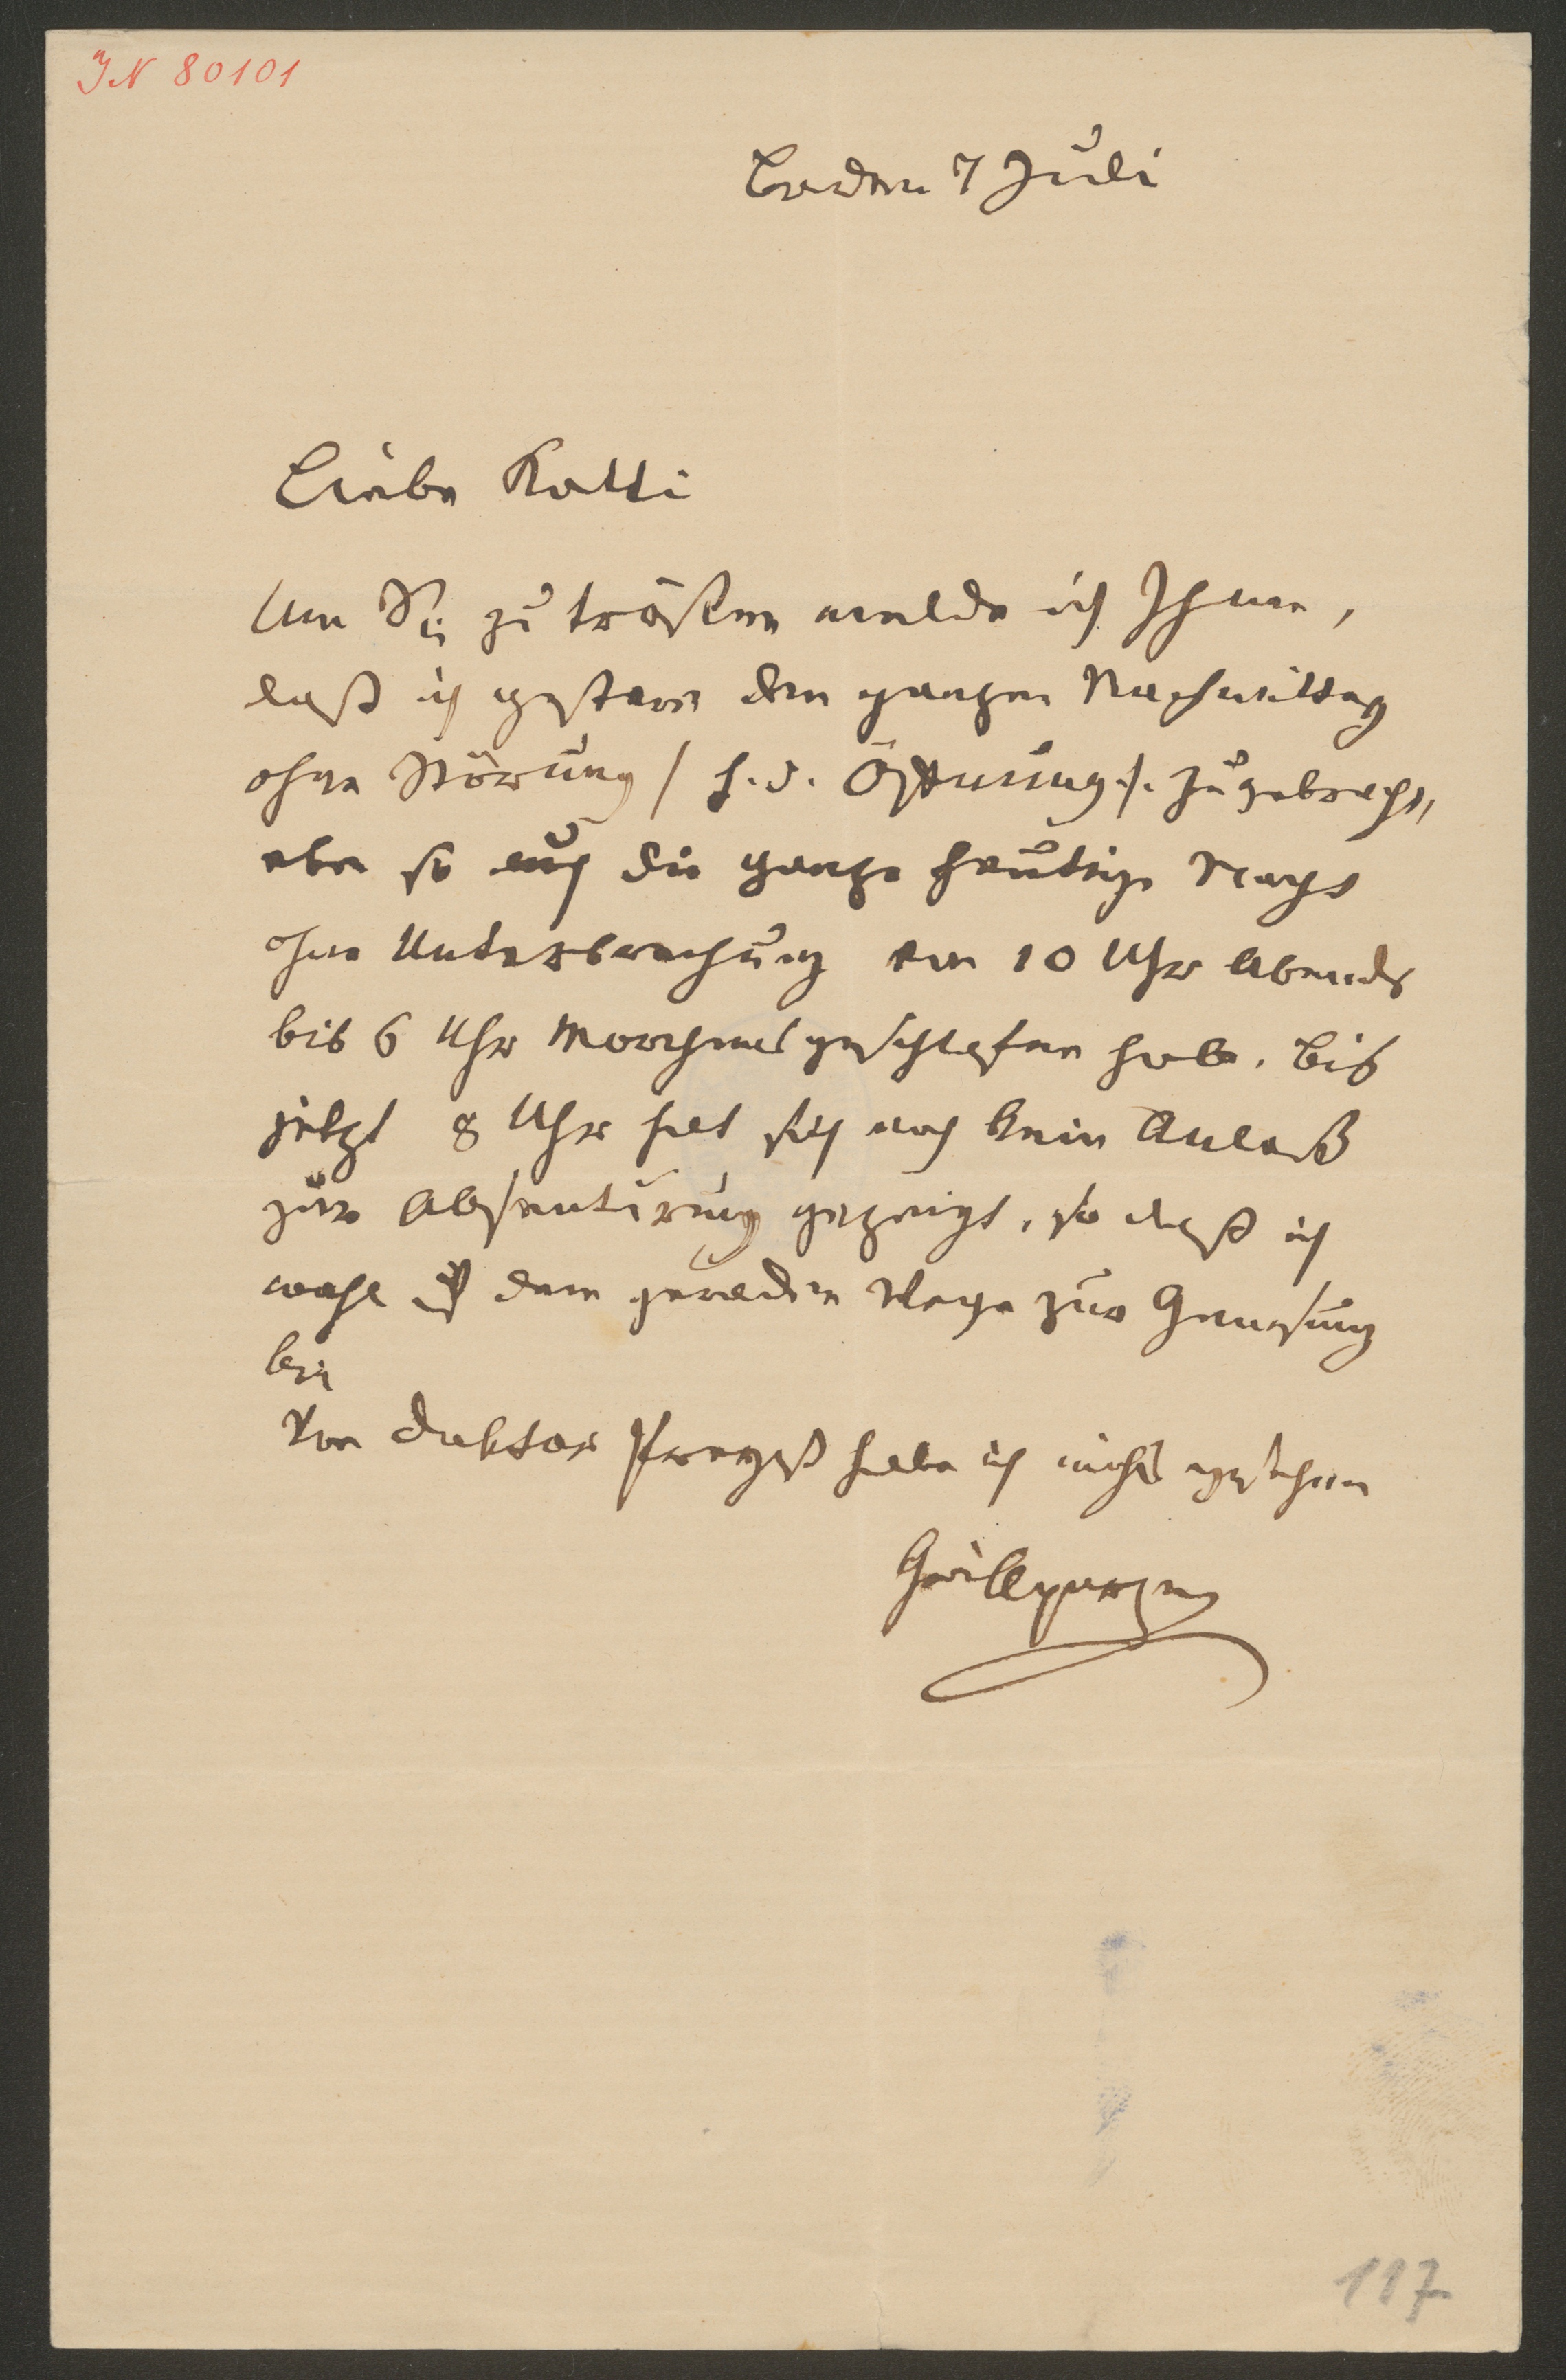 IN 80101
Baden 7 Juli
Liebe Katti
Um Sie zu trösten melde ich Ihnen,
daß ich gestern den ganzen Nachmittag
ohne Störung /: h. d. Öffnung :/. zugebracht,
eben so auch die ganze heutige Nacht
ohne Unterbrechung von 10 Uhr Abends
bis 6 Uhr Morgens geschlafen habe. Bis
jetzt 8 Uhr hat sich noch kein Anlaß
zur Absentirung gezeigt, so daß ich
wohl auf dem geraden Wege zur Genesung
bin
Von Doktor habe ich nichts gesehen
Grillparzer
117